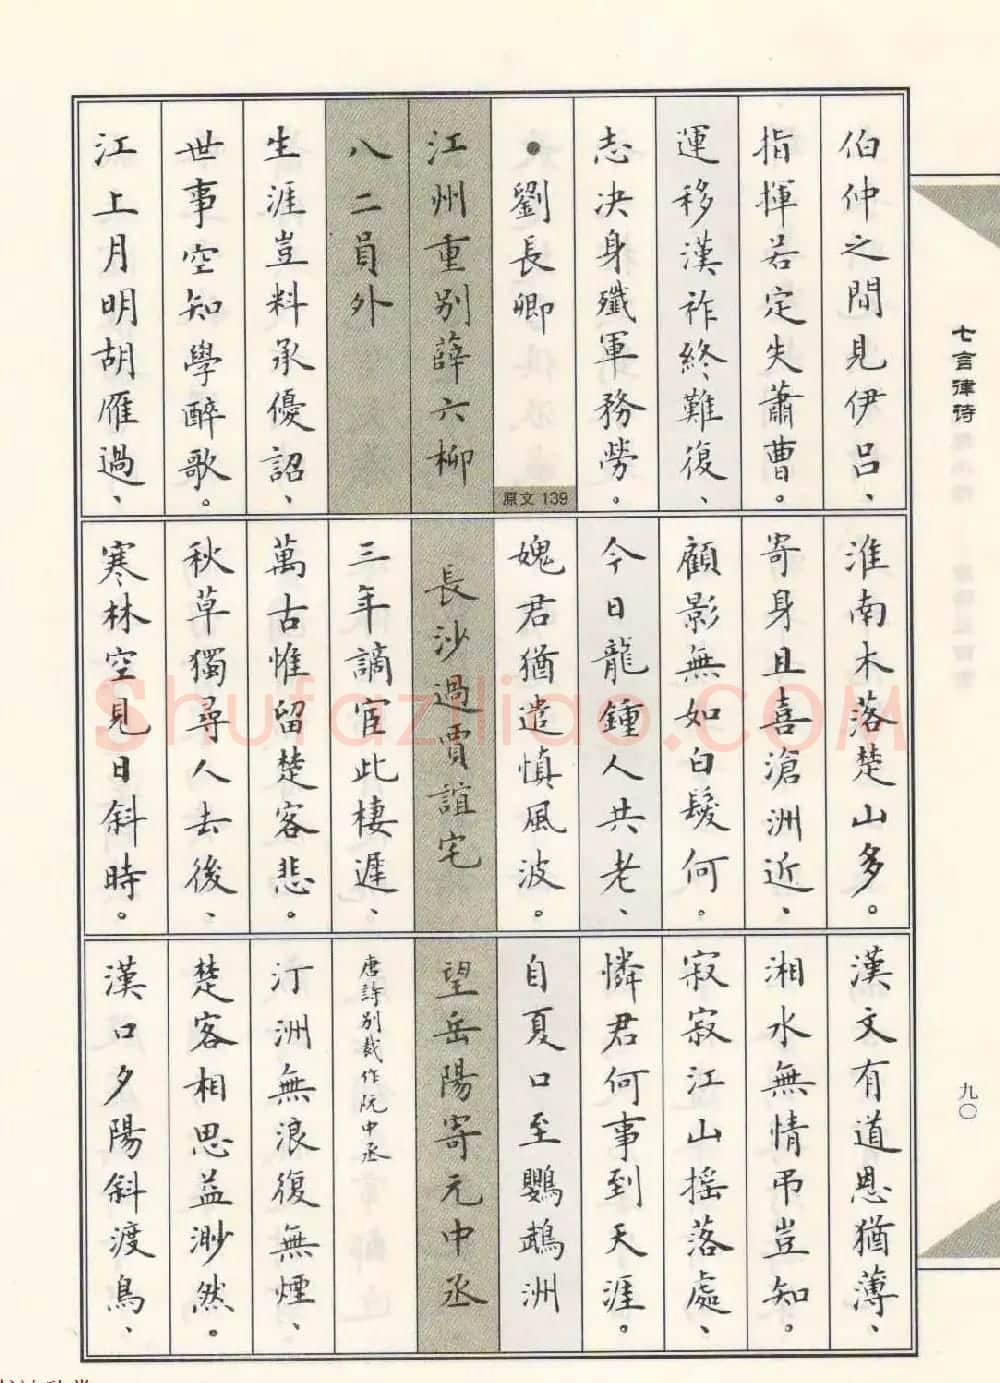 伯仲之間見伊呂、
指揮若定失蕭曹。
運移漢祚終難復、
志決身殲軍務勞。
●劉長卿
原文 139
江州重別薛六柳
八二員外
生涯豈料承優詔、
世事空知學醉歌。
江上月明胡雁過、
淮南木落楚山多。
寄身且喜滄洲近、
顧影無如白髮何。
今日龍鍾人共老、
媿君猶遣慎風波。
長沙過賈誼宅
三年謫宦此棲遲、
萬古惟留楚客悲。
秋草獨尋人去後、
寒林空見日斜時。
漢文有道恩猶薄、
湘水無情弔豈知。
寂寂江山搖落處、
憐君何事到天涯。
自夏口至鸚鵡洲
望岳陽寄元中丞
唐詩別裁作阮中丞
汀洲無浪復無煙、
楚客相思益渺然。
漢口夕陽斜渡鳥、
七言律诗
九〇
Shufaziliao.COM